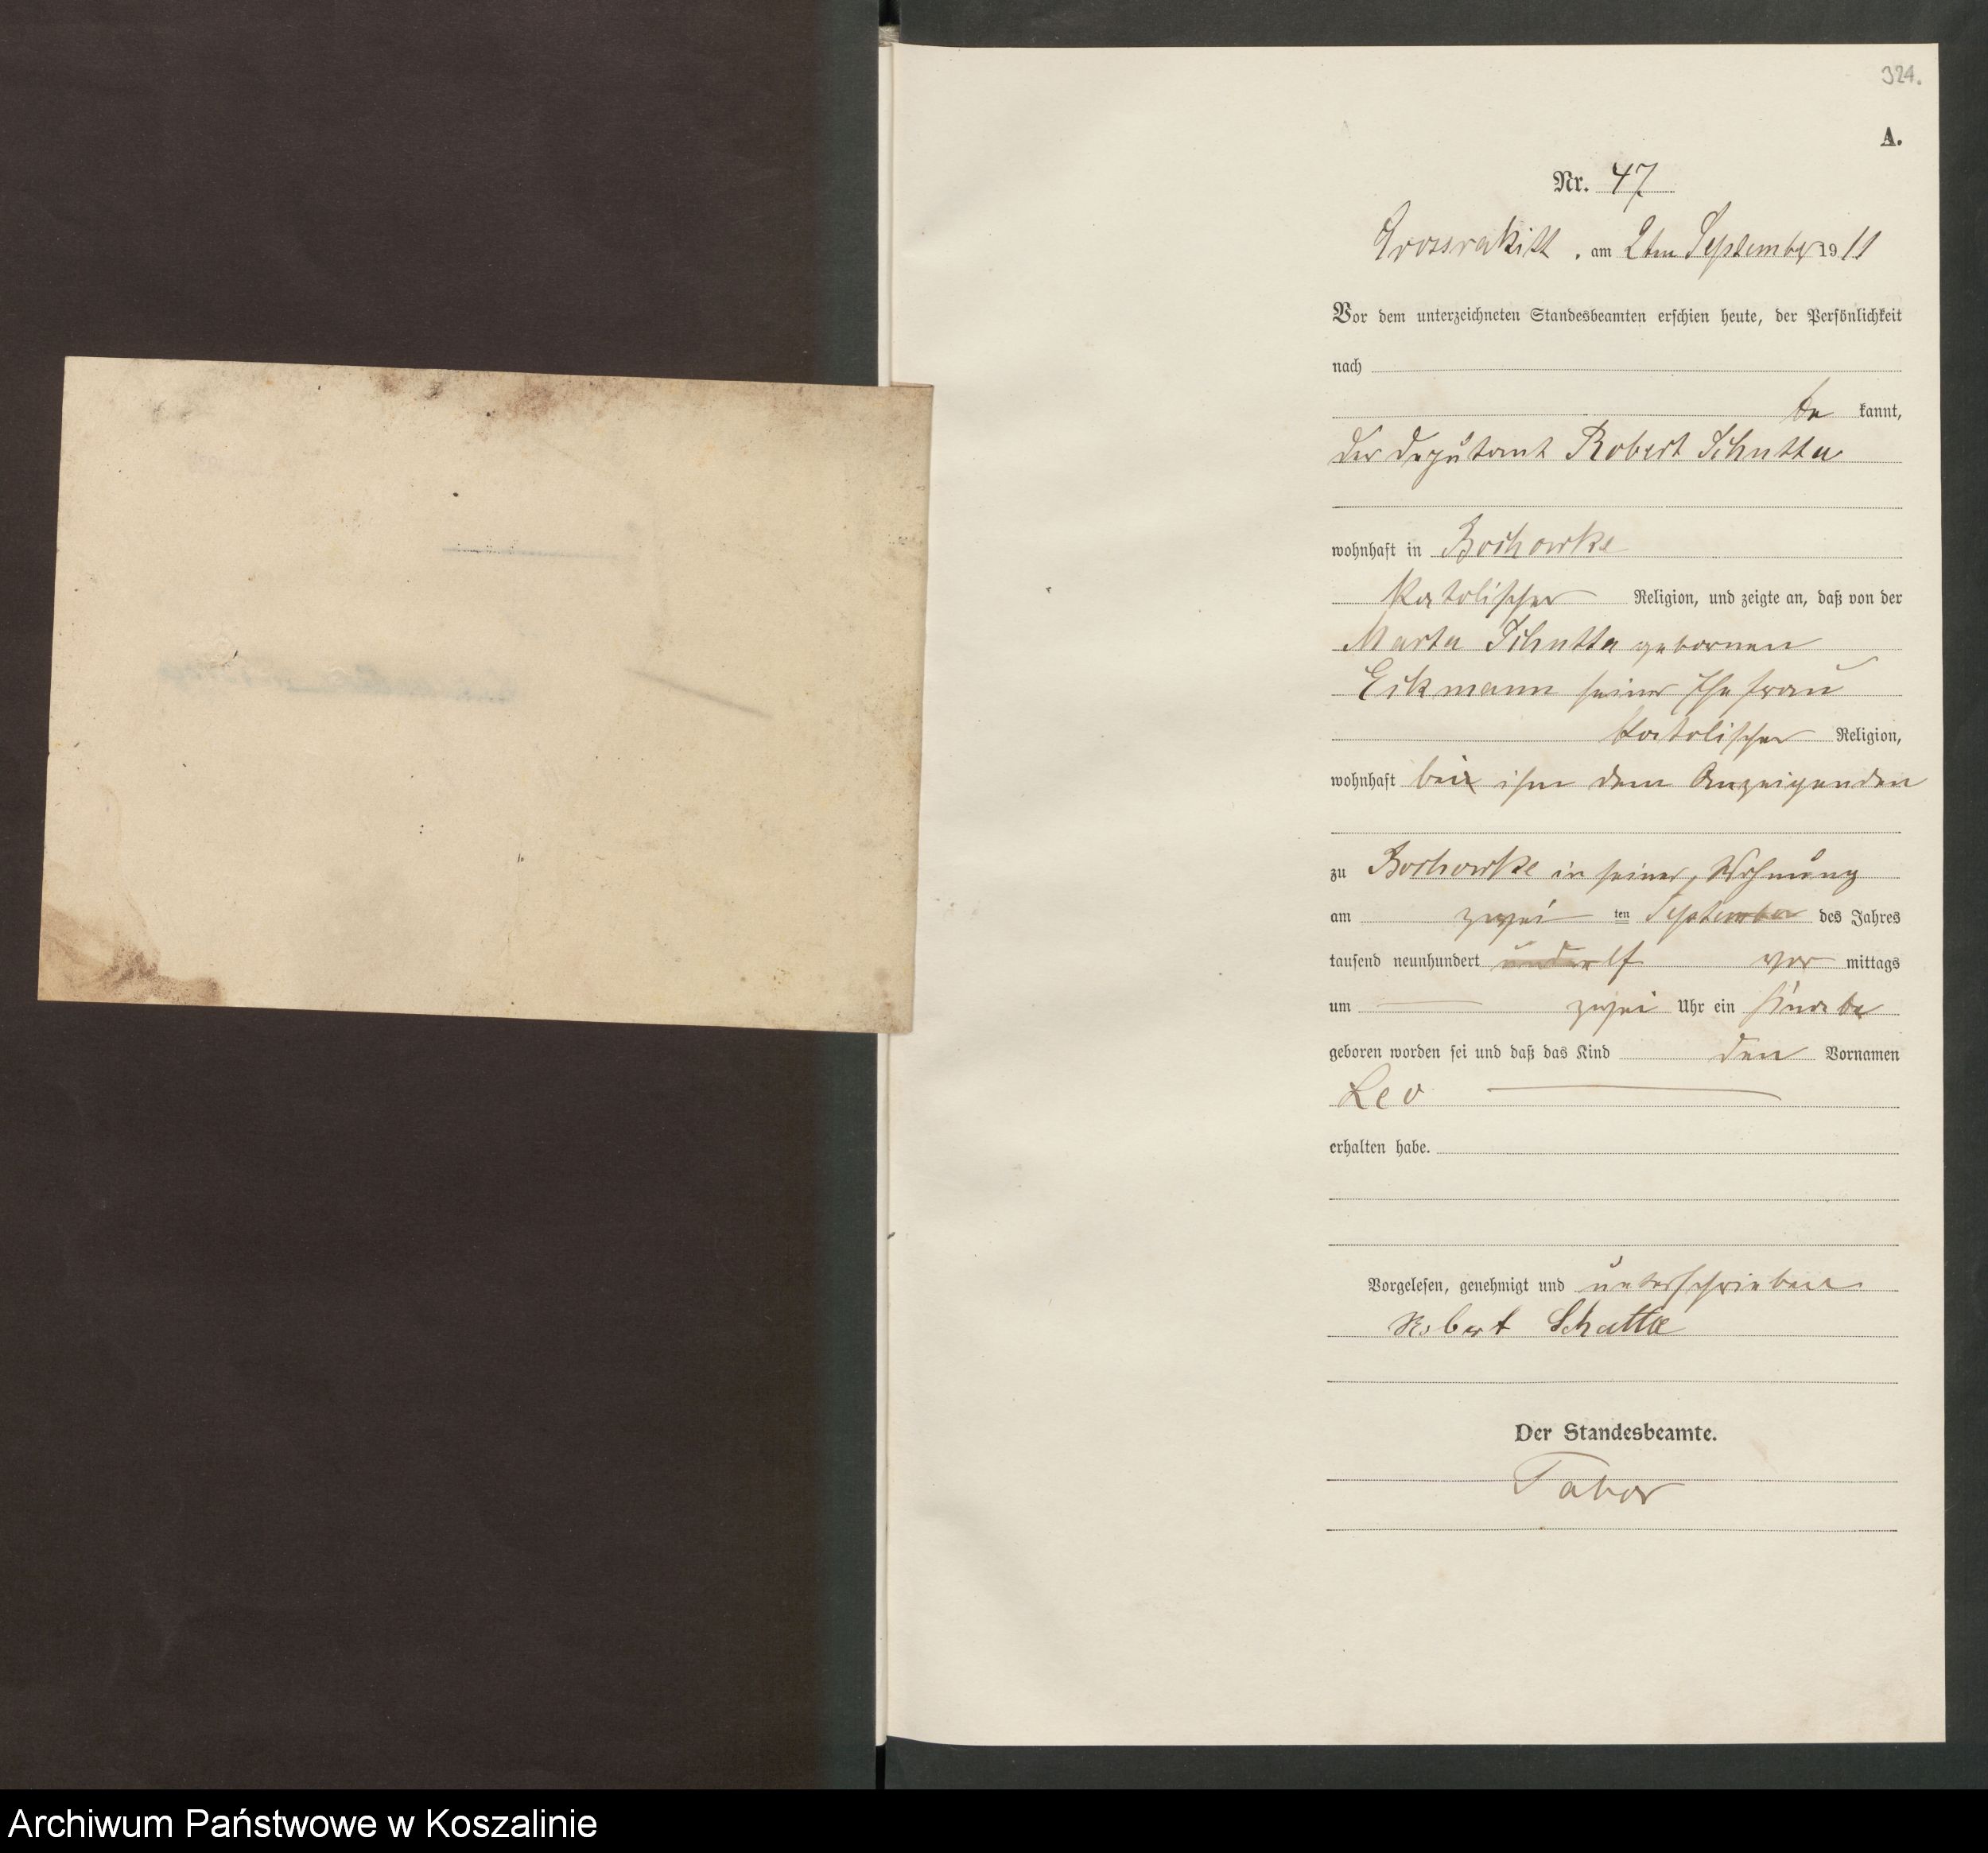 324.
A.
Nr. 47
Grossrakitt, am 2ten September 1911
Vor dem unterzeichneten Standesbeamten erschien heute, der Persönlichkeit
nach
be kannt,
der Deputant Robert Schutta
wohnhaft in Bochowke
Katolischer Religion, und zeigte an, daß von der
Marta Schutta gebornen
Eikmann seiner Ehefrau
Katolischer Religion,
wohnhaft bei ihm dem Anzeigenden
zu Bochowke in seiner, Wohnung
am zwei ten September des Jahres
tausend neunhundert und elf vor mittags
um zwei Uhr ein
geboren worden sei und daß das Kind den Vornamen
Leo
erhalten habe.
Vorgelesen, genehmigt und unterschrieben
Robert Schutta
Der Standesbeamte.
Tabor
Archiwum Państwowe w Koszalinie